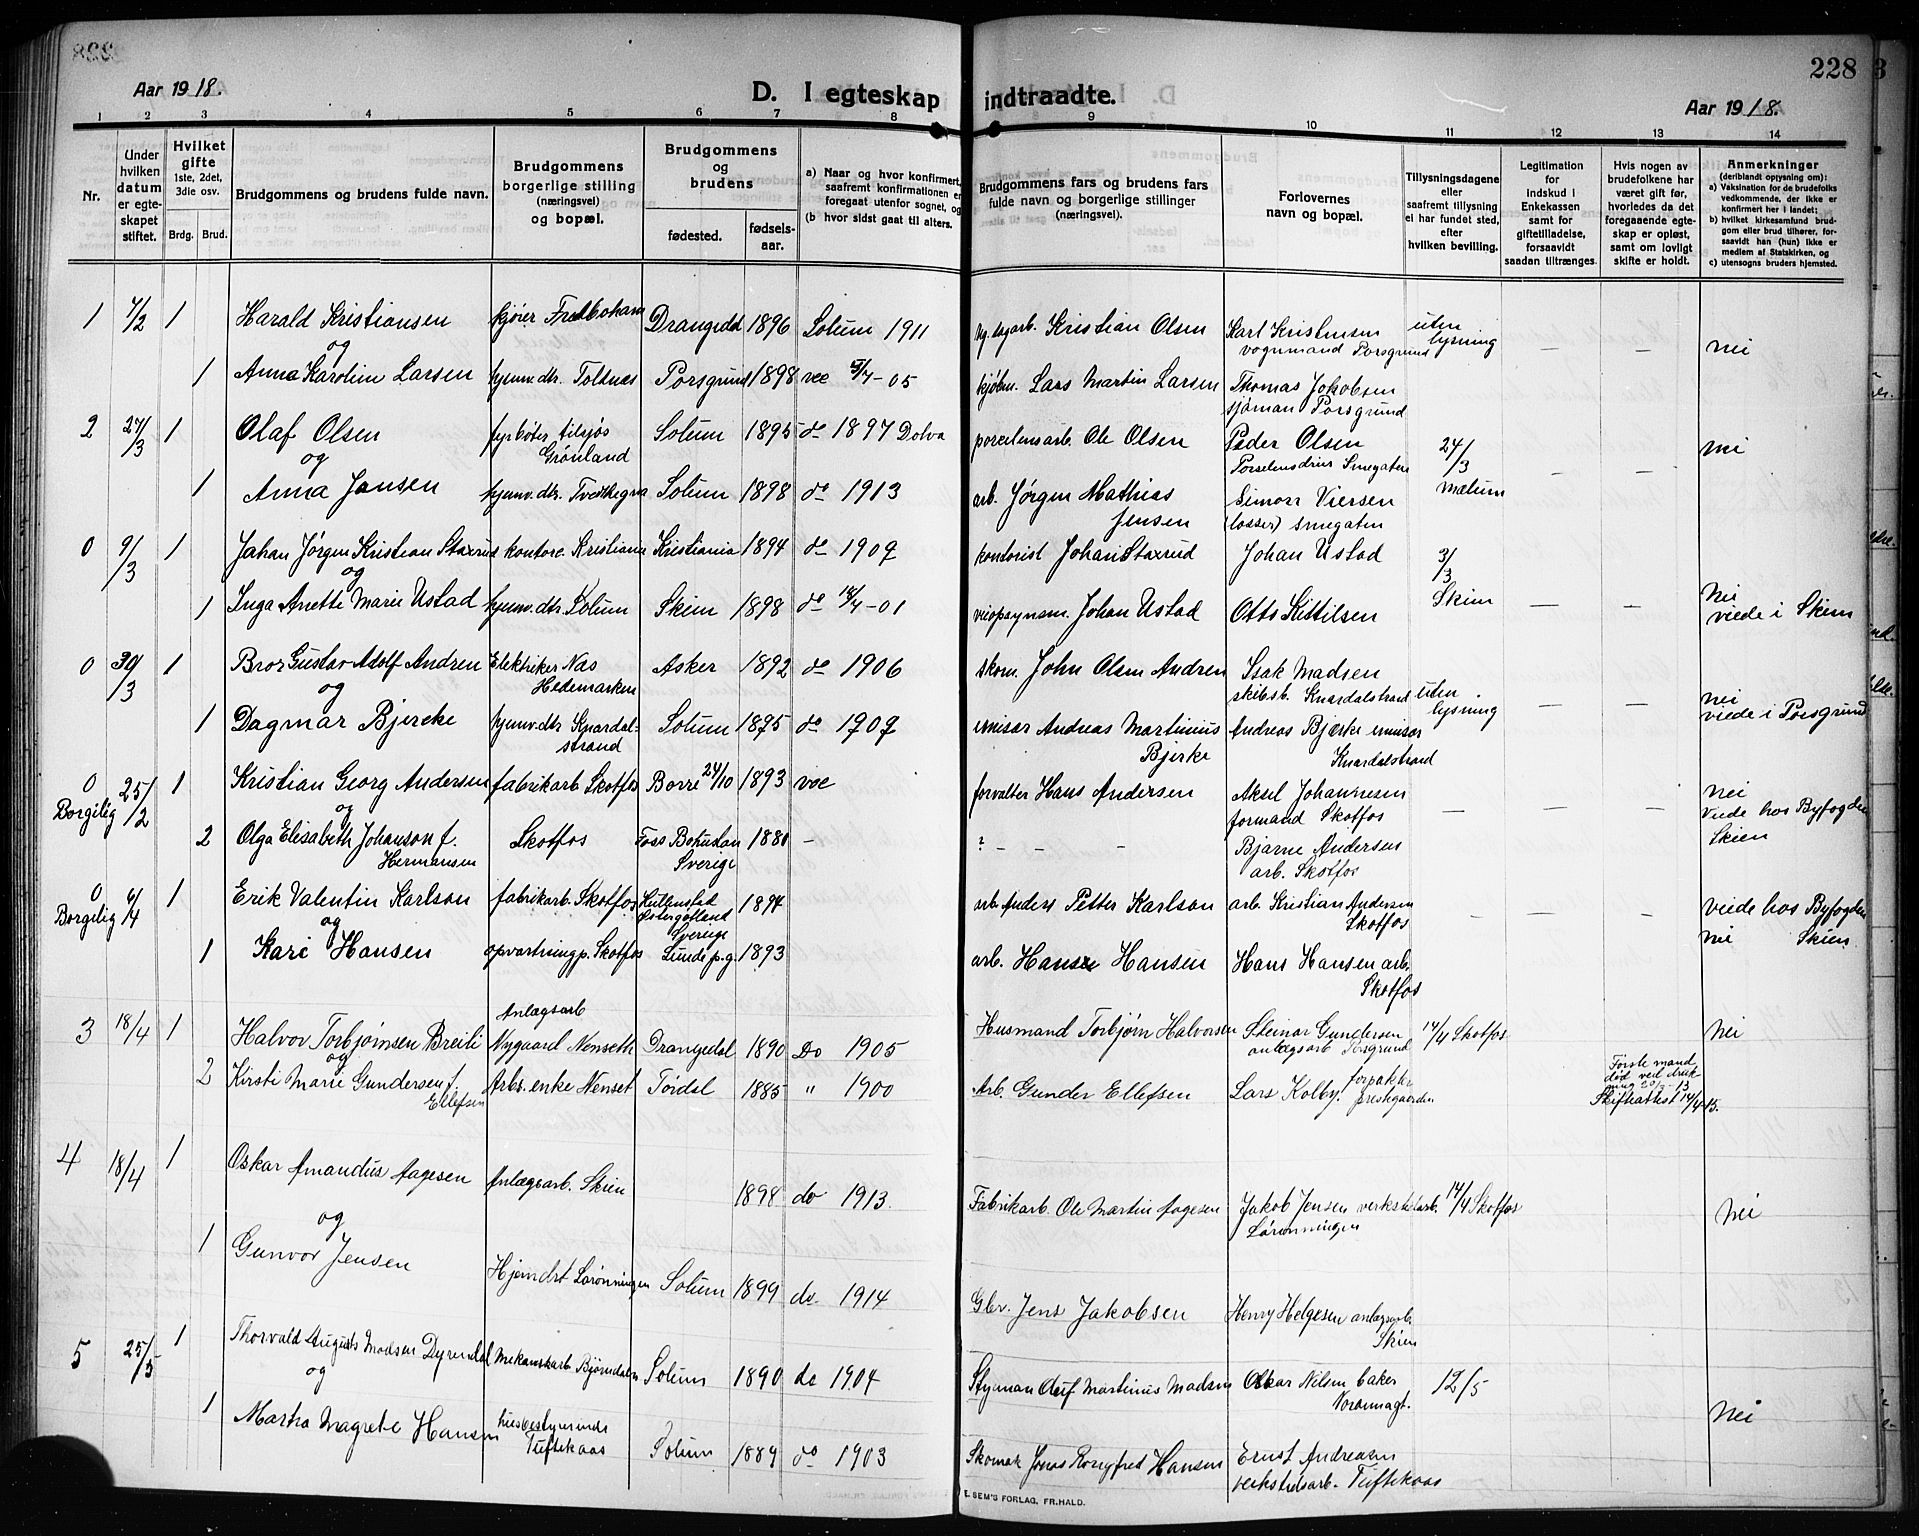 228
Aar 1918.
D. I egteskap indtraadte.
Aar 1918.
1 2 3 4 5 6 7 8 9 10 11 12 13 14
Nr.
Under hvilken datum er egteskapet stiftet.
Hvilket gifte 1ste, 2det, 3die osv.
Brdg. Brud.
Brudgommens og brudens fulde navn.
Brudgommens borgerlige stilling (næringsvei) og bopæl.
Brudgommens og brudens
fødested. fødselsaar.
a) Naar og hvor konfirmert, saafremt konfirmationen er foregaat utenfor sognet, og
(b hvor sidst gaat til alters.
Brudgommens fars og brudens fars fulde navn og borgerlige stillinger (næringsvei).
Forlovernes navn og bopæl.
Tillysningsdagene eller saafremt tillysning ei har fundet sted, efter hvilken bevilling.
Legitimation for indskud i Enkekassen samt for giftetilladelse, forsaavidt saadan tiltrænges.
Hvis nogen av brudefolkene har været gift før, hvorledes da det foregaaende egteskap er opløst, samt om lovligt skifte er holdt.
Anmerkninger (deriblandt opysning om):
a) Vaksination for de brudefolks vedkommende, der ikke er konfirmert her i landet;
b) hvilket kirkesamfund brudgom eller brud tilhører, forsaavidt han (hun) ikke er medlem av Statskirken, og
c) utensogns bruders hjemsted.
1 7/2 1 Harald Kristiansen kjører Drangedal 1896 Solum 1911 Kristian Olsen Karl Kristensen vognmand Porsgrund uten lysning — — nei
og
1 Anna Karolin Larsen hjemv. dtr. Toldnæs Porsgrund 1898 vac Lars Martin Larsen Thomas Jakobsen sjøman Porsgrund
2 24/3 1 Olaf Olsen fyrbøter tilsjøs Grønland Solum 1895 do 1897 Dolva porcelensarb. Ole Olsen Peder Olsen 24/3 Mælum — — nei
og
1 Anna Jansen hjemv. dtr. Solum 1898 do 1913 arb. Jørgen Mathias Jensen Simon Viersen (losser) Smegaten
0 9/3 1 Johan Jørgen Kristian Staxrud kontor. Kristiania Kristiania 1894 do 1909 kontorist Johan Staxrud Johan Ustad 3/3 Skien — — nei viede i Skien
og
1 Inga Anette Marie Ustad hjemv. dtr. Solum Skien 1898 do 18/4-01 Johan Ustad Otto Kittilsen
0 30/3 1 Bror Gustav Adolf Andren Elektriker Næs Hedemarken Asker 1892 do 1906 skom. John Olsen Andren Isak Madsen skibsb. Knardalstrand uten lysning — — nei viede i Porsgrund
og
1 Dagmar Bjercke hjemv. dtr. Knardalstrand Solum 1895 do 1909 emisær Andreas Martinius Bjerke Andreas Bjerke emisær Knardalstrand
0 Borgilig 25/2 1 Kristian Georg Andersen fabrikarb. Skotfos Borre 24/10 1893 vac forvalter Hans Andersen Aksel Johannesen formand Skotfos — — — nei Viede hos Byfogden Skien
og
2 Olga Elisabeth Johanson f. Hermansen Skotfos Foss Bohuslan Sverige 1880 — ? — — — Bjarne Andersen arb. Skotfos
0 Borgilig 6/4 1 Erik Valentin Karlson fabrikarb. Skotfos Østergøtland Sverige 1894 arb. Anders Petter Karlson arb. Kristian Andersen Skotfos — — — viede hos Byfogden Skien nei
og
1 Kari Hansen opvartningp. Skotfos Lunde p.g. 1893 arb. Hans Hansen Hans Hansen arb. Skotfos
3 18/4 1 Halvor Torbjørnsen Breili Anlægsarb Nygaard Nenseth Drangedal 1890 Do 1905 Husmand Torbjørn Halvorsen Steinar Gundersen anlægsarb Porsgrund 14/4 Skotfos nei
og
2 Kirsti Marie Gundersen f. Ellefsen Arbs. enke Nenset Tørdal 1885 " 1900 Arb. Gunder Ellefsen Lars Kolby. forpakter prestegaarden Første mand død ved drukning 20/3-13 Skifteattest 14/4-15.
4 18/4 1 Oskar Amandus Aagesen Anlægsarb. Skien 1898 do 1913. Fabrikarb. Ole Martin Aagesen Jakob Jensen verkstedarb. Lørønningen 14/4 Skotfos nei
og
1 Gunvor Jensen Hjemdtr Lørønningen Solum 1899 do. 1914 Gbr. Jens Jakobsen Henry Helgesen anlægsarb. Skien
5 25/5 1 Thorvald Augusts Madsen Dyrendal Mekaniskarb Bjørndalen Solum 1890 do 1904 Styrman Martinius Madsen Oskar Nilsen baker 12/5 nei
og
1 Martha Magrete Hansen husbestyrerinde Tuftekaas Solum 1889 do 1903 Skomak Jonas Hansen Ernst Andreasen verkstedsarb. Tuftekaas
E. SEM'S FORLAG, FR.HALD.